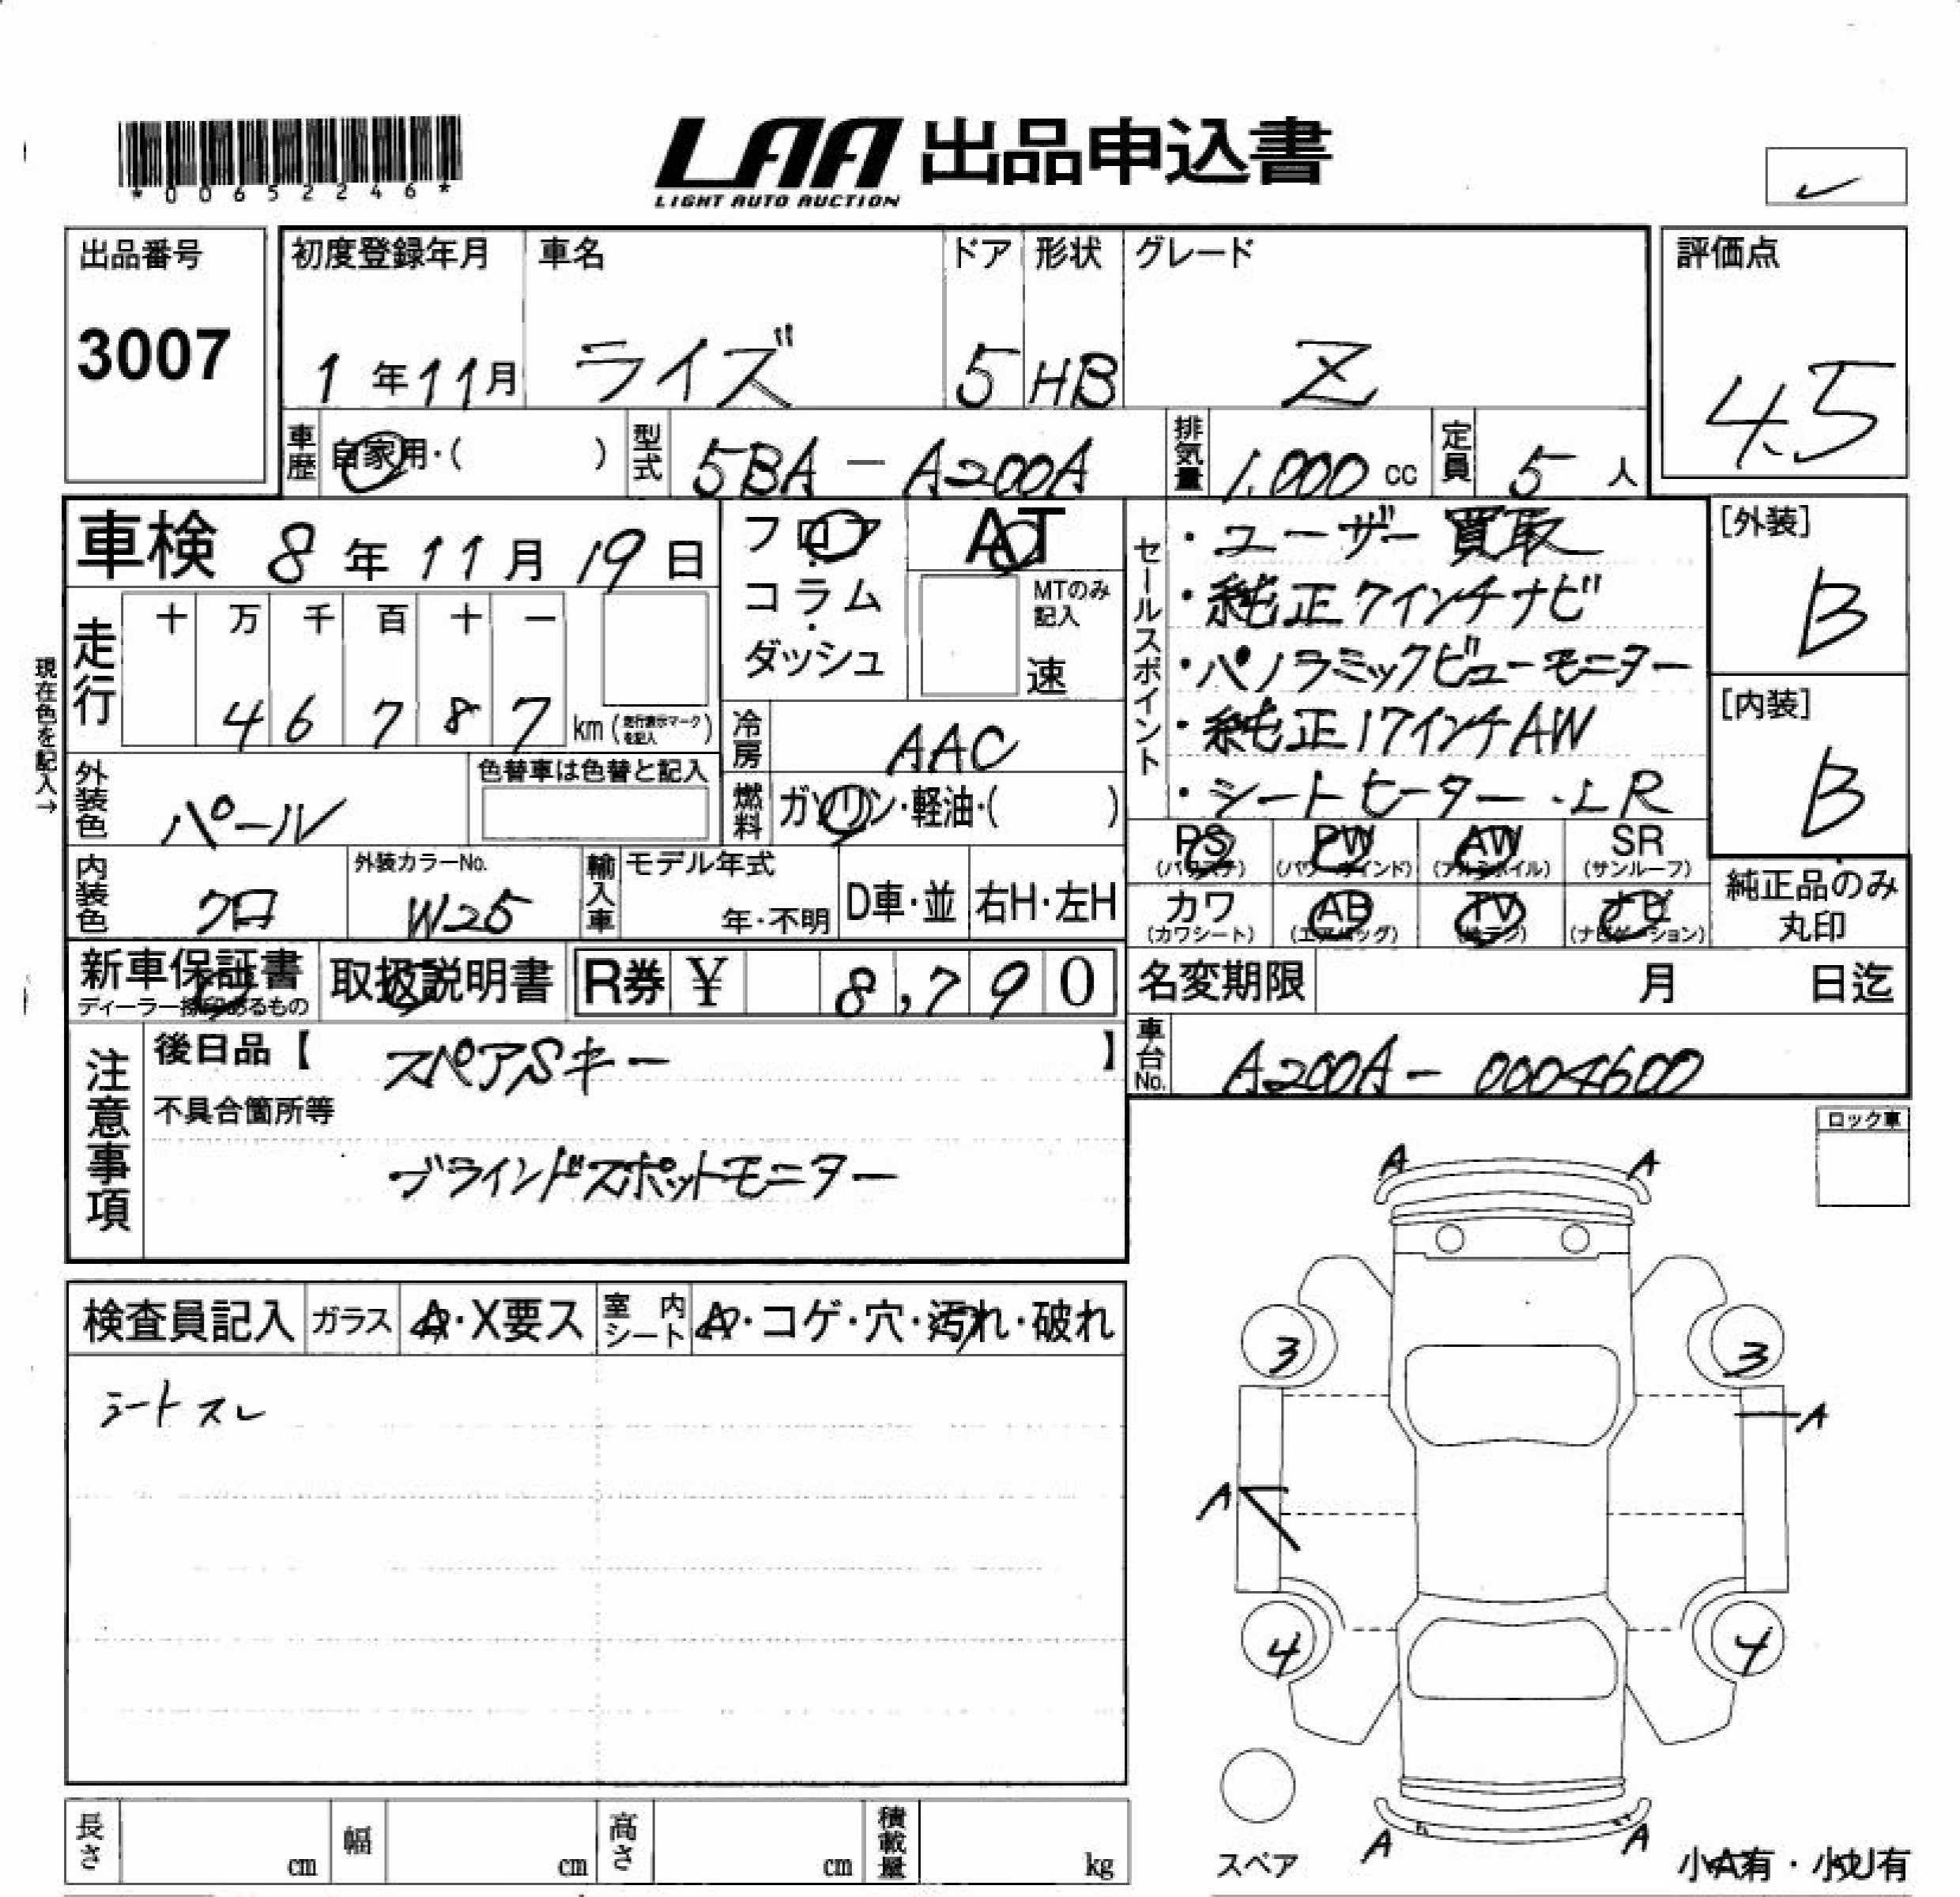 *00652246*
LAA 出品申込書
LIGHT AUTO AUCTION
出品番号
3007
初度登録年月
1年11月
車名
ライズ
ドア
5
形状
HB
グレード
Z
評価点
4.5
車歴
自家用・( )
型式
5BA-A200A
排気量
1,000cc
定員
5人
車検 8年11月19日
フロア・コラム・ダッシュ
AT
MTのみ記入
速
現在色を記入→
走行
十万千百十一
46787
km(走行表示マークを記入)
冷房
AAC
外装色
パール
色替車は色替と記入
燃料
ガソリン・軽油・( )
内装色
クロ
外装カラーNo.
W25
輸入車
モデル年式
年・不明
D車・並
右H・左H
セールスポイント
・ユーザー買取
・純正7インチナビ
・パノラミックビューモニター
・純正17インチAW
・シートヒーター・LR
[外装]
B
[内装]
B
PS
(パワステ)
PW
(パワーウインド)
AW
(アルミホイル)
SR
(サンルーフ)
カワ
(カワシート)
AB
(エアバッグ)
TV
ナビ
(ナビゲーション)
純正品のみ
丸印
新車保証書
ディーラー捺印あるもの
取扱説明書
R券 ¥ 8,790
名変期限
月 日迄
車台No.
A200A-0004600
注意事項
後日品【 スペアSキー 】
不具合箇所等
ブラインドスポットモニター
ロック車
検査員記入
ガラス
A・X要ス
室内シート
A・コゲ・穴・汚れ・破れ
シートスレ
A A
3 3
A
A
4 4
A A
スペア
小A有・小U有
長さ cm
幅 cm
高さ cm
積載量 kg